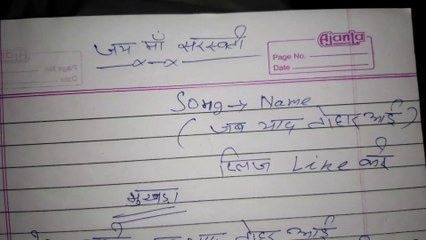 जय माँ सरस्वती
Ajanta
Page No.
Date
Song → Name
( जब याद तोहार आई )
प्लिज Like करे
मुखड़ा
याद तोहर आई